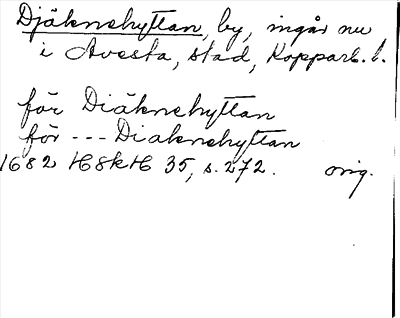 Djäknehyttan, by, ingår nu
i Avesta, stad, Kopparb. l.
för Diäknehyttan
för --- Diaknehyttan
1682 HSkH 35, s. 272. orig.